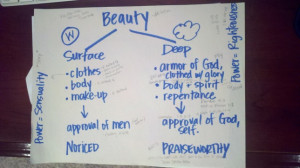 Beauty
W
Surface
• clothes
• body
• make-up
approval of men
NOTICED
Deep
• armor of God,
clothed w/glory
• body + spirit
• repentance
approval of God,
self.
PRAISEWORTHY
Power = Sensuality
Power = Righteousness